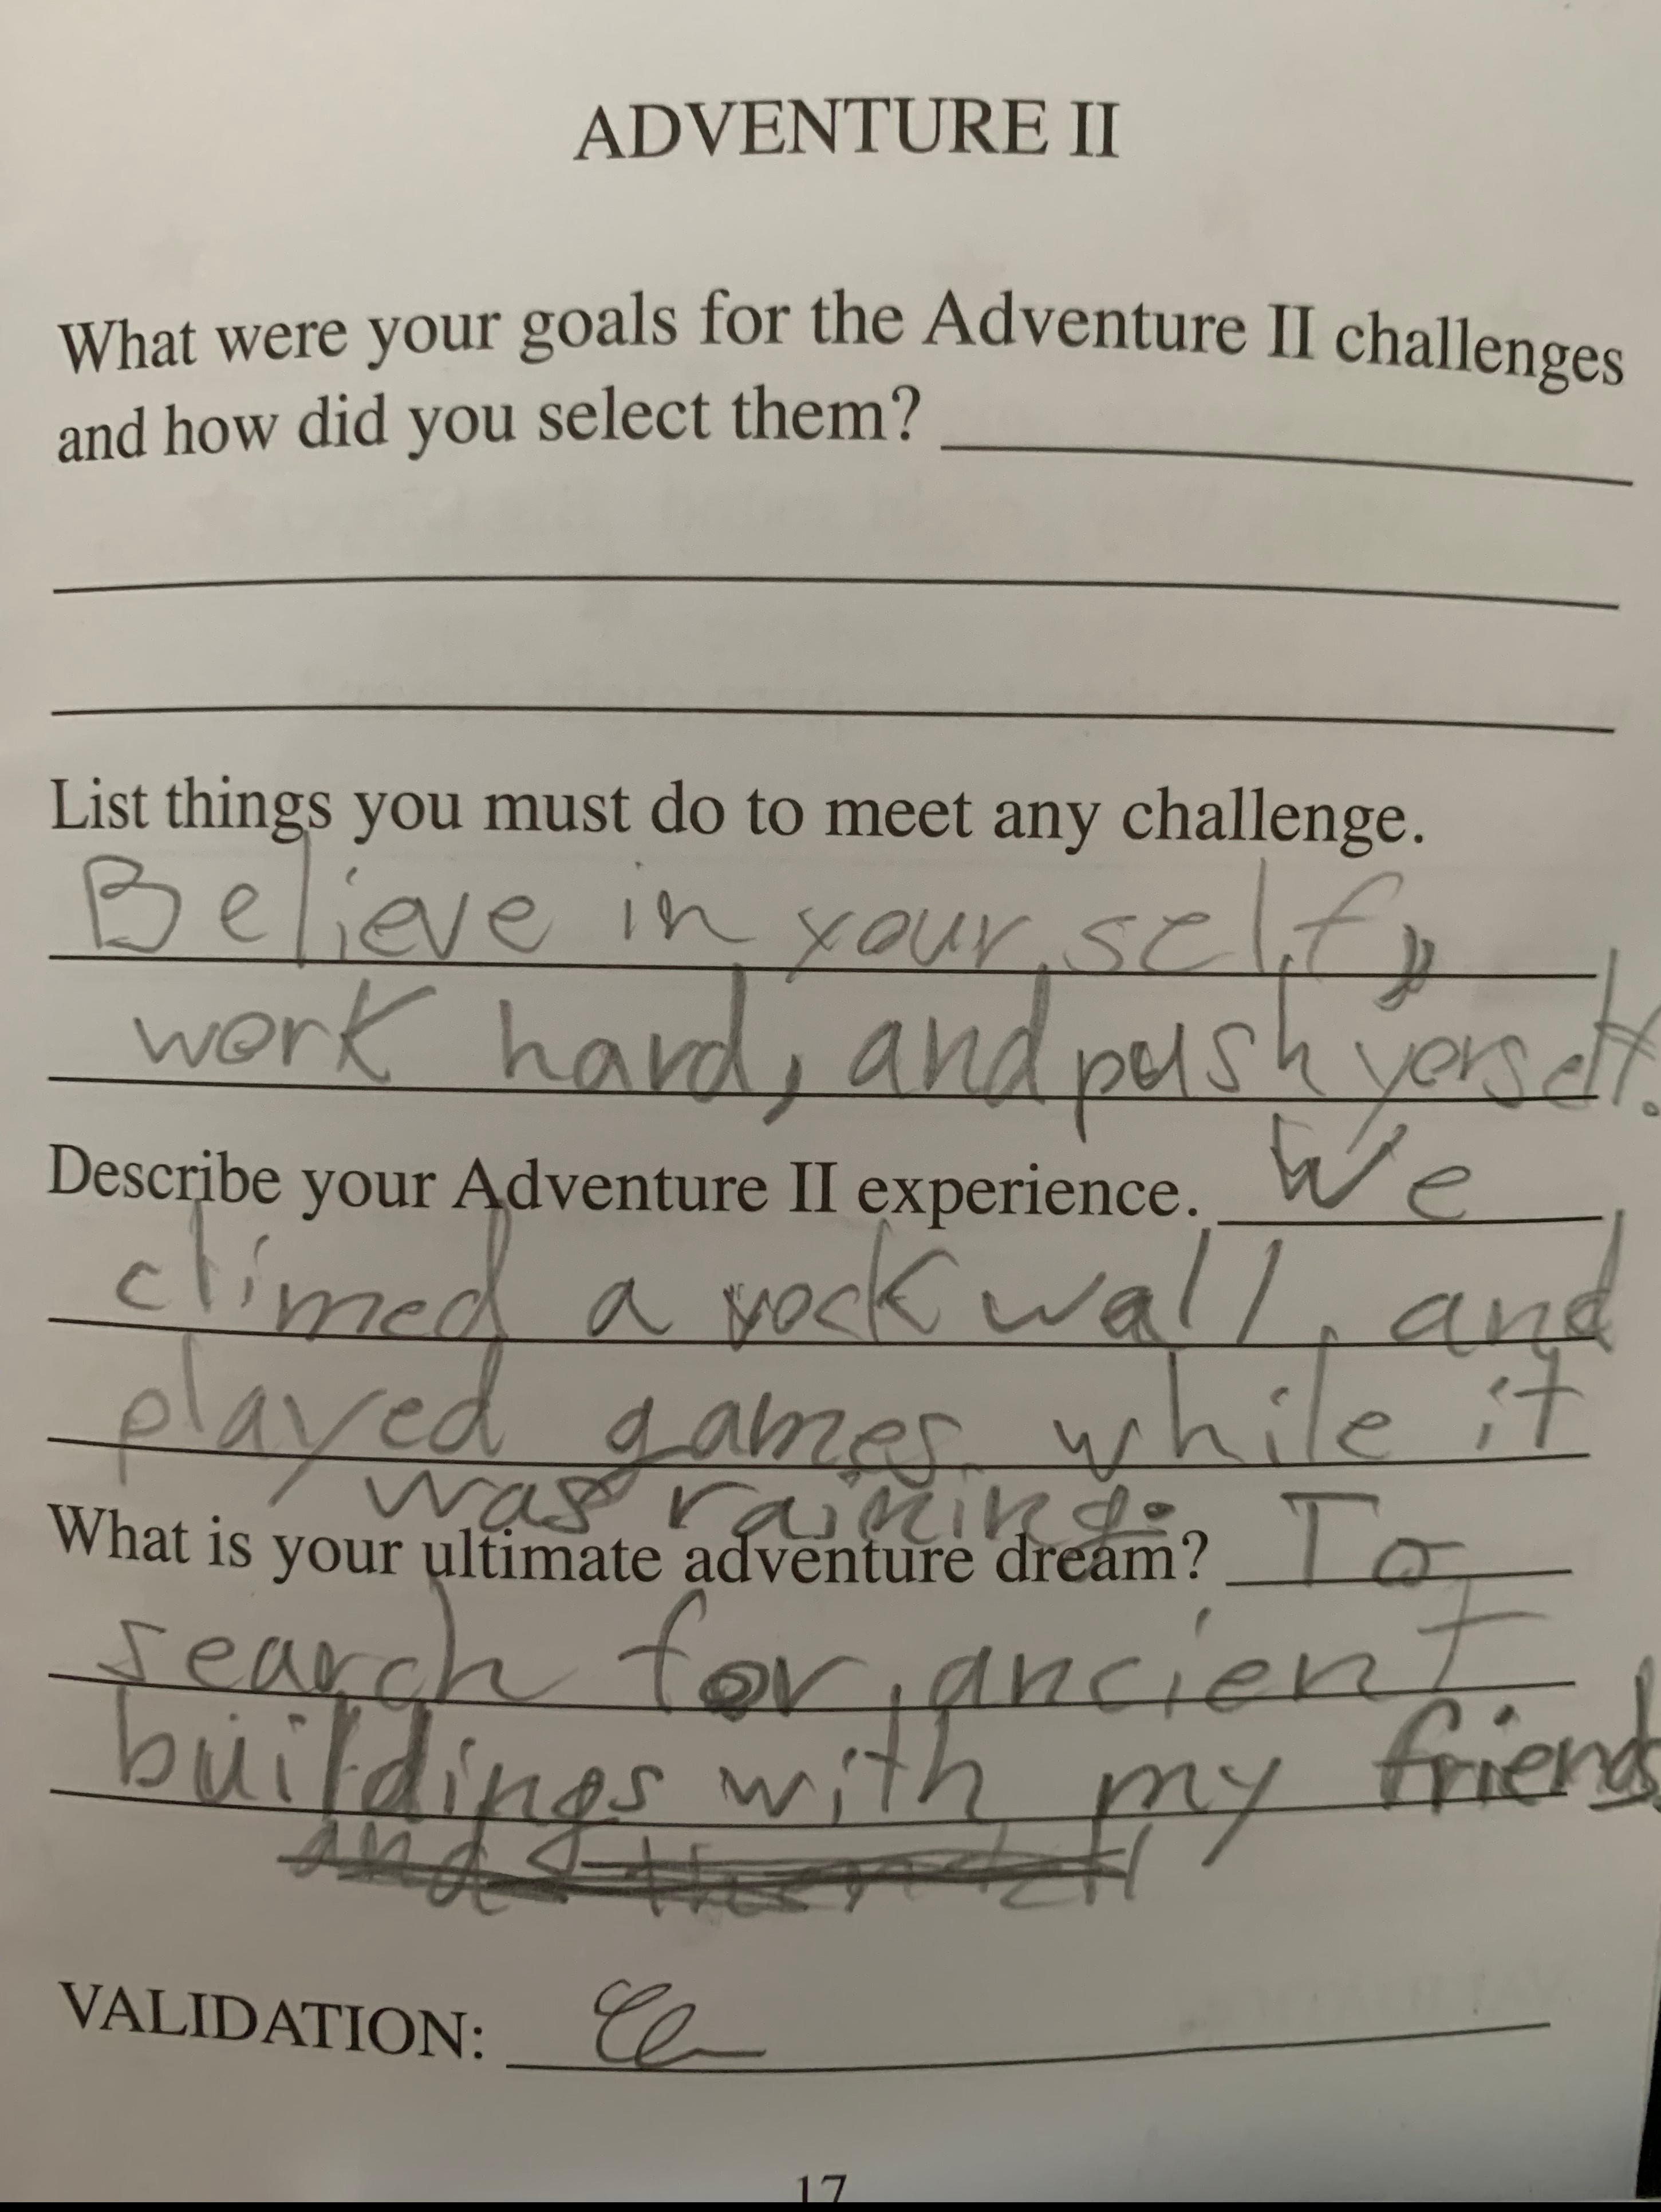 ADVENTURE II
What were your goals for the Adventure II challenges
and how did you select them?
List things you must do to meet any challenge.
Believe in yourself,
work hard, and push yorself.
Describe your Adventure II experience. We
climed a rock wall, and
played games while it
was raining.
What is your ultimate adventure dream? To
search for ancient
buildings with my friends
and
VALIDATION:
17